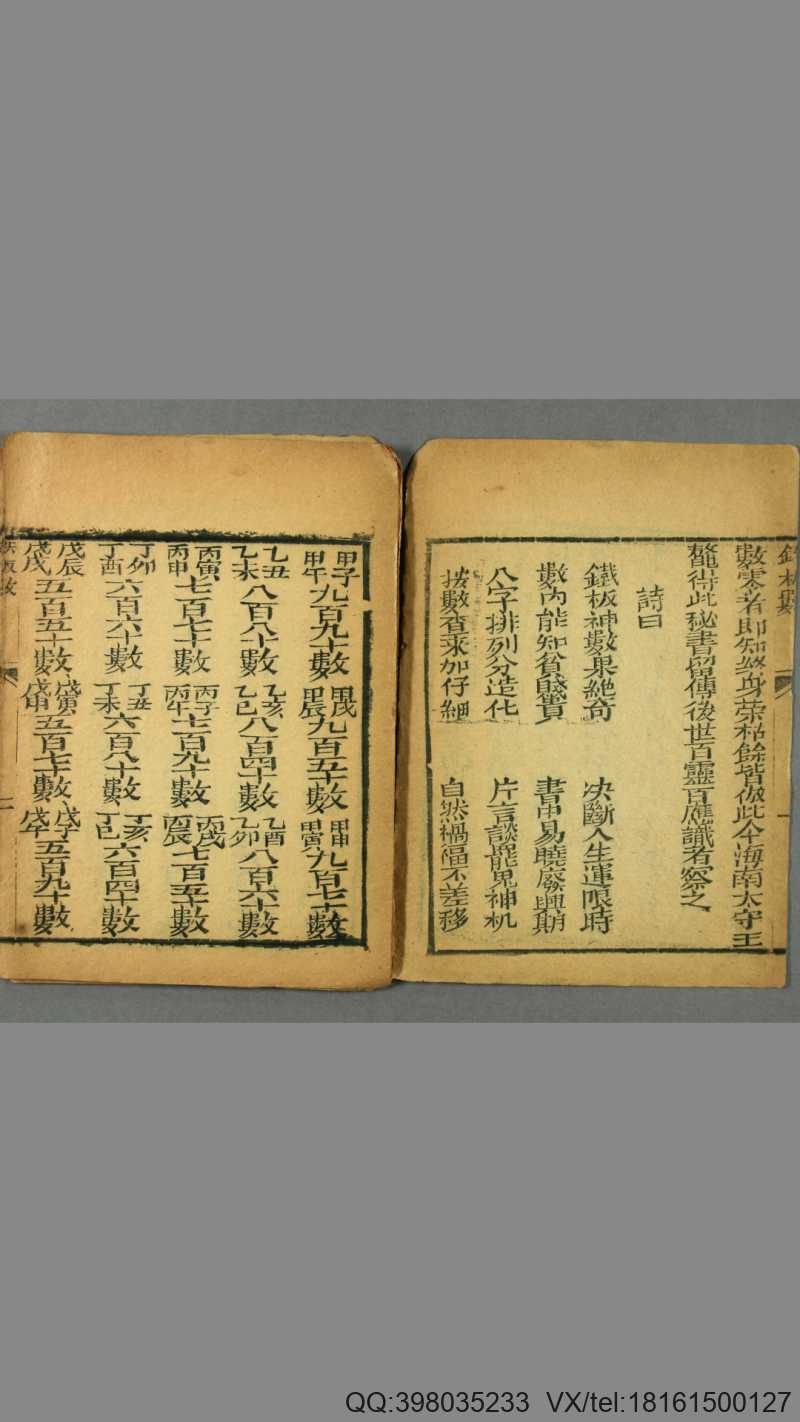 數零者即知終身荣枯餘皆倣此今海南太守王
鰲得此秘書留傳後世百靈百應識者察之
詩曰
鐵板神數果絶奇 決斷人生運限時
數內能知貧賤貴 書中易曉廢興期
八字排列分造化 片言談罷鬼神机
按數查來加仔細 自然禍福不差移
甲子甲午九百九十數 甲戌甲辰九百五十數 甲申甲寅九百七十數
乙丑乙未八百八十數 乙亥乙巳八百四十數 乙酉乙卯八百六十數
丙寅丙申七百七十數 丙子丙午七百九十數 丙戌丙辰七百五十數
丁卯丁酉六百六十數 丁丑丁未六百八十數 丁亥丁巳六百四十數
戊辰戊戌五百五十數 戊寅戊申五百七十數 戊子戊午五百九十數
二
QQ:398035233 VX/tel:18161500127